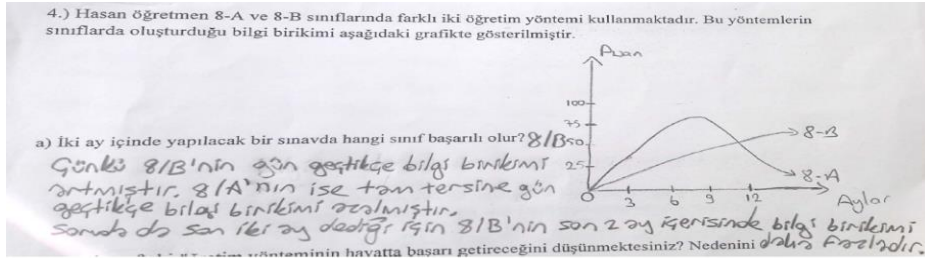 4.) Hasan öğretmen 8-A ve 8-B sınıflarında farklı iki öğretim yöntemi kullanmaktadır. Bu yöntemlerin
sınıflarda oluşturduğu bilgi birikimi aşağıdaki grafikte gösterilmiştir.
Puan
100
75
50
25
0
3
6
9
12
Aylar
8-B
8-A
a) İki ay içinde yapılacak bir sınavda hangi sınıf başarılı olur? 8/B
Çünkü 8/B'nin gün geçtikçe bilgi birikimi
artmıştır. 8/A'nın ise tam tersine gün
geçtikçe bilgi birikimi azalmıştır.
Soruda da son iki ay dediği için 8/B'nin son 2 ay içerisinde bilgi birikimi
daha fazladır.
yönteminin hayatta başarı getireceğini düşünmektesiniz? Nedenini